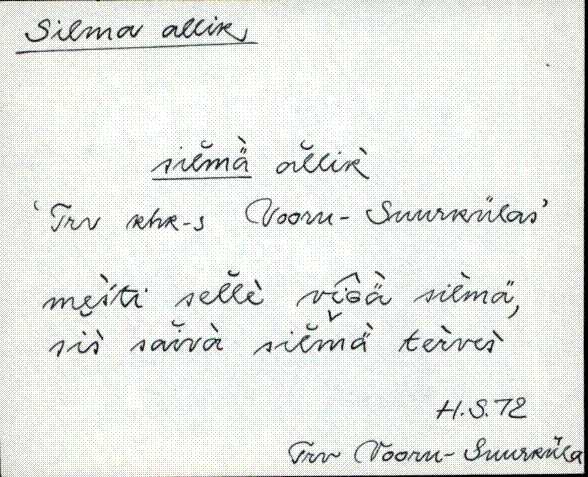 Silma allik
silmä allik
'Trv khk-s Vooru-Suurkülas'
mesti sellè viɢä silmä,
sis saivà silmä tervès
H.S.72
Trv Vooru-Suurküla